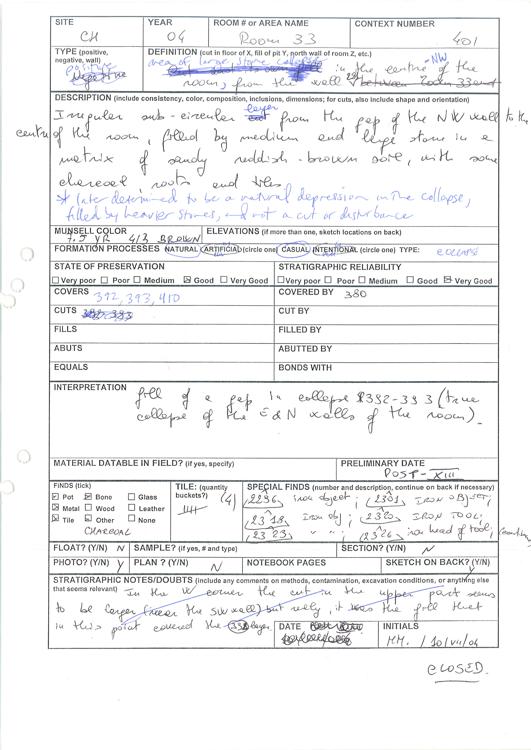 SITE YEAR ROOM # or AREA NAME CONTEXT NUMBER
CH 04 Room 33 401
TYPE (positive, negative, wall) DEFINITION (cut in floor of X, fill of pit Y, north wall of room Z, etc.)
positive area of large stone collapse in the centre of the
Negative room, from the NW wall between Room 33 and
DESCRIPTION (include consistency, color, composition, inclusions, dimensions; for cuts, also include shape and orientation)
Irregular sub-circular layer from the gap of the NW wall to the
centre of the room, filled by medium and large stone in a
matrix of sandy reddish-brown soil, with some
charcoal, roots and tiles.
* later determined to be a natural depression in the collapse,
filled by heavier stones, and not a cut or disturbance
MUNSELL COLOR ELEVATIONS (if more than one, sketch locations on back)
7.5 YR 4/3 BROWN
FORMATION PROCESSES NATURAL/ARTIFICIAL (circle one) CASUAL/INTENTIONAL (circle one) TYPE: collapse
STATE OF PRESERVATION STRATIGRAPHIC RELIABILITY
Very poor Poor Medium Good Very Good Very poor Poor Medium Good Very Good
COVERS 392, 393, 410 COVERED BY 380
CUTS 392 393 CUT BY
FILLS FILLED BY
ABUTS ABUTTED BY
EQUALS BONDS WITH
INTERPRETATION fill of a gap in collapse 392-393 (true
collapse of the E & N walls of the room).
MATERIAL DATABLE IN FIELD? (if yes, specify) PRELIMINARY DATE
POST-XIII
FINDS (tick) TILE: (quantity buckets?) (4) SPECIAL FINDS (number and description, continue on back if necessary)
Pot Bone Glass
Metal Wood Leather
Tile Other None
CHARCOAL
2296 iron object; 2301 IRON OBJECT;
2318 iron obj; 2320 IRON TOOL;
2323 " "; 2326 iron head of tool;
FLOAT? (Y/N) N SAMPLE? (if yes, # and type) SECTION? (Y/N) N
PHOTO? (Y/N) Y PLAN ? (Y/N) N NOTEBOOK PAGES SKETCH ON BACK? (Y/N) Y
STRATIGRAPHIC NOTES/DOUBTS (include any comments on methods, contamination, excavation conditions, or anything else that seems relevant)
In the W corner the cut in the upper part seems
to be larger (near the SW wall) but really, it was the fill that
in this point covered the layer
DATE INITIALS
MM. / 10/VII/04
CLOSED.